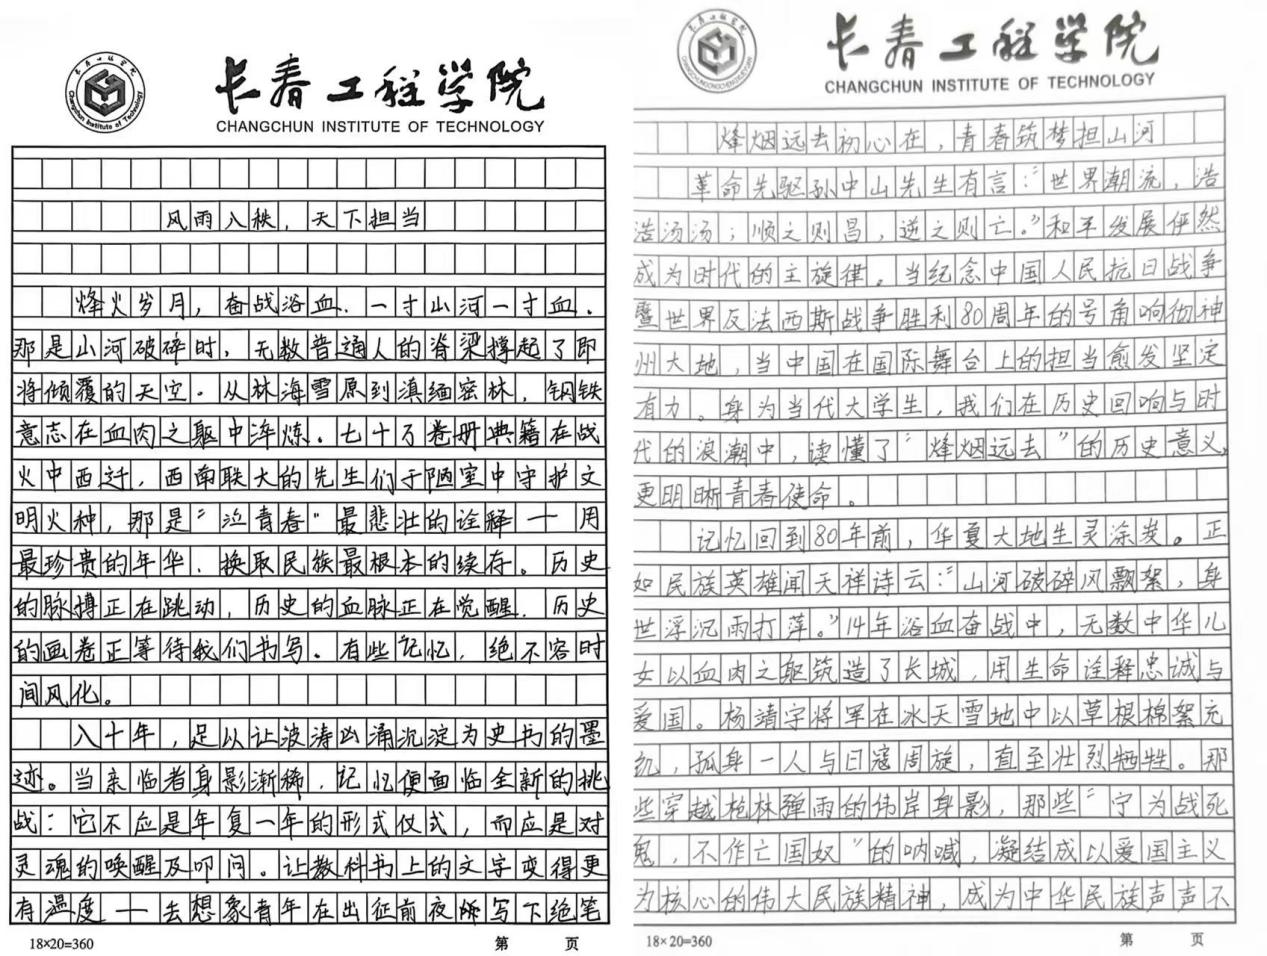 长春工程学院
CHANGCHUN INSTITUTE OF TECHNOLOGY
风雨入秩，天下担当
烽火岁月，奋战浴血．一寸山河一寸血．
那是山河破碎时，无数普通人的脊梁撑起了即
将倾覆的天空．从林海雪原到滇缅密林，钢铁
意志在血肉之躯中淬炼．七十万卷册典籍在战
火中西迁，西南联大的先生们于陋室中守护文
明火种，那是“泣青春”最悲壮的诠释——用
最珍贵的年华，换取民族最根本的续存。历史
的脉搏正在跳动，历史的血脉正在觉醒．历史
的画卷正等待我们书写。有些记忆，绝不容时
间风化。
八十年，足以让波涛汹涌沉淀为史书的墨
迹。当亲临者身影渐稀，记忆便面临全新的挑
战：它不应是年复一年的形式仪式，而应是对
灵魂的唤醒及叩问。让教科书上的文字变得更
有温度——去想象青年在出征前夜写下绝笔
18×20=360
第 页
长春工程学院
CHANGCHUN INSTITUTE OF TECHNOLOGY
烽烟远去初心在，青春筑梦担山河
革命先驱孙中山先生有言：“世界潮流，浩
浩汤汤；顺之则昌，逆之则亡。”和平发展俨然
成为时代的主旋律。当纪念中国人民抗日战争
暨世界反法西斯战争胜利80周年的号角响彻神
州大地，当中国在国际舞台上的担当愈发坚定
有力。身为当代大学生，我们在历史回响与时
代的浪潮中，读懂了“烽烟远去”的历史意义，
更明晰青春使命。
记忆回到80年前，华夏大地生灵涂炭。正
如民族英雄闻天祥诗云：“山河破碎风飘絮，身
世浮沉雨打萍。”14年浴血奋战中，无数中华儿
女以血肉之躯筑造了长城，用生命诠释忠诚与
爱国。杨靖宇将军在冰天雪地中以草根棉絮充
饥，孤身一人与日寇周旋，直至壮烈牺牲。那
些穿越枪林弹雨的伟岸身影，那些“宁为战死
鬼，不作亡国奴”的呐喊，凝结成以爱国主义
为核心的伟大民族精神，成为中华民族声声不
18×20=360
第 页